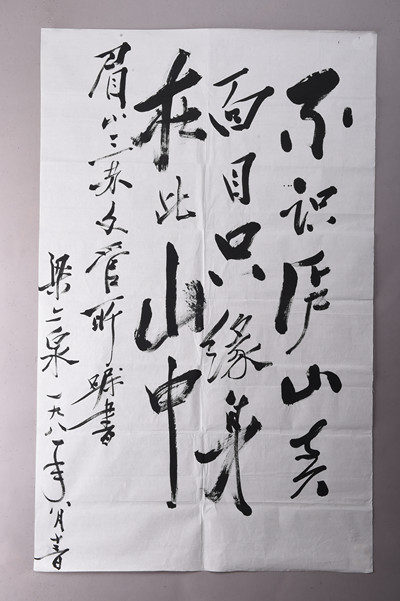 不识庐山真
面目只缘身
在此山中
眉山三苏文管所嘱书
梁上泉一九八一年八月